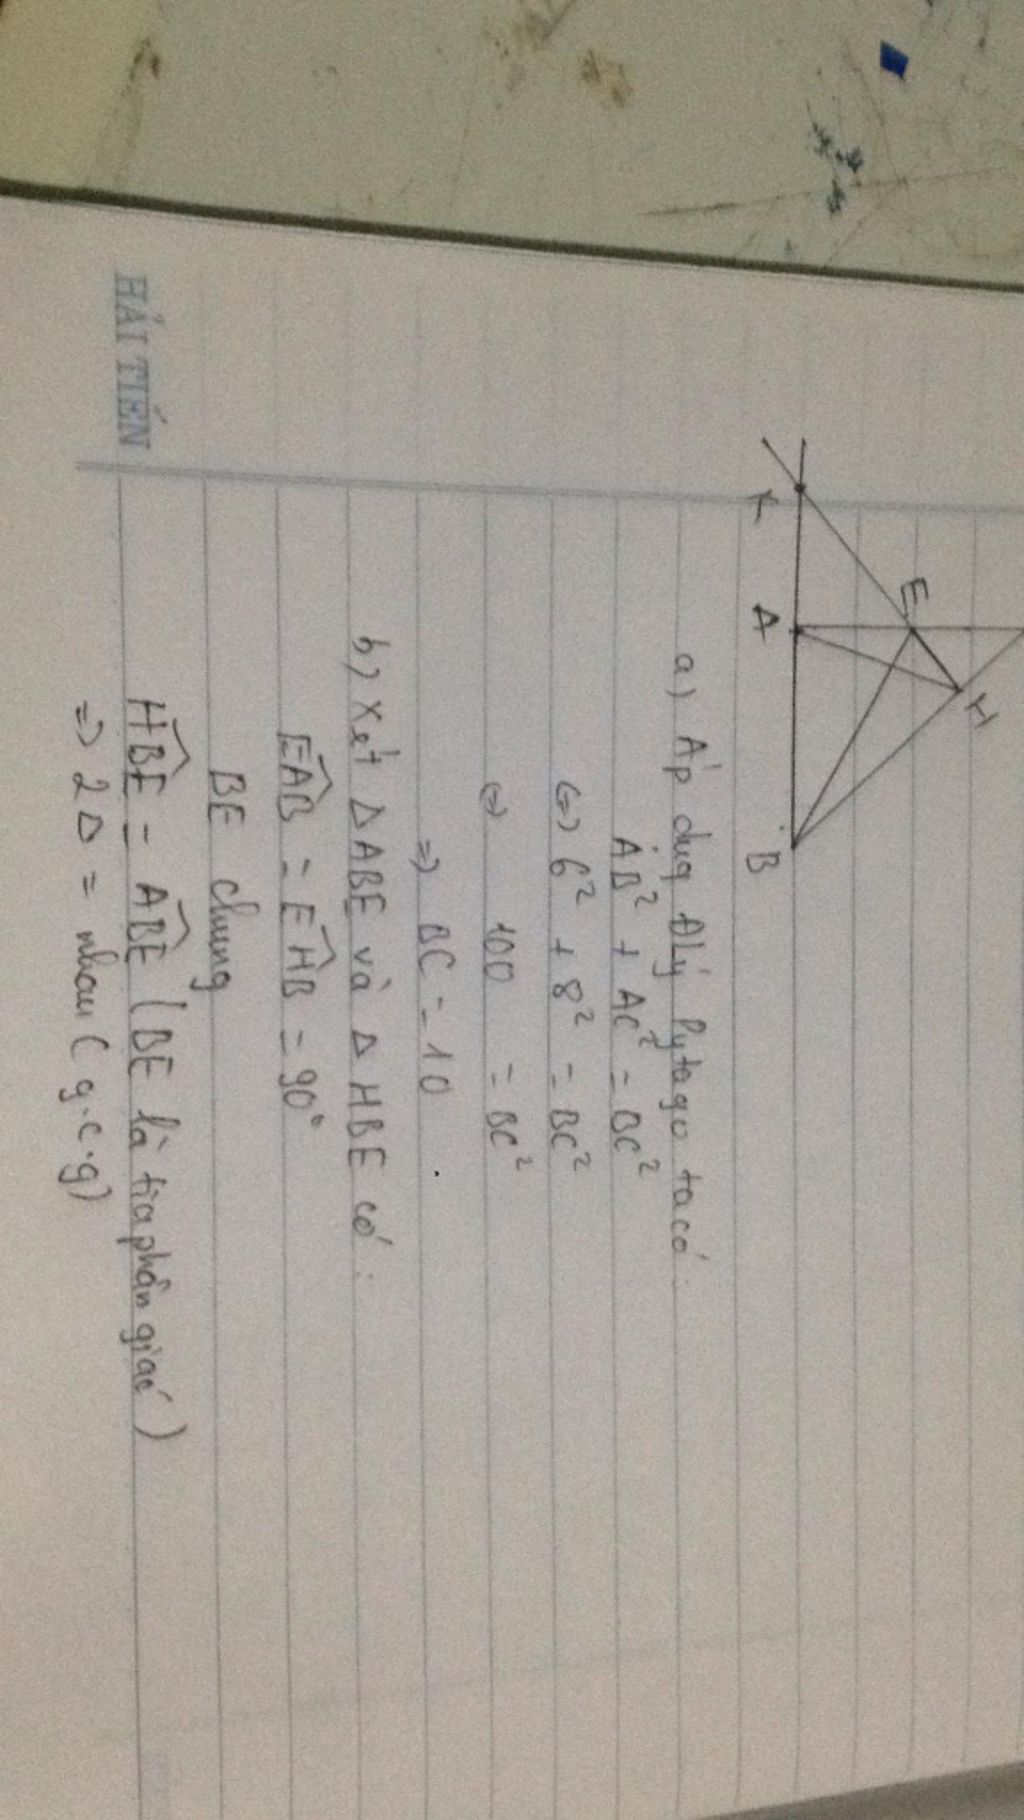 K
E
A
H
B
a) Áp dụg Đlý Pytago ta có:
AB² + AC² = BC²
(=) 6² + 8² = BC²
(=) 100 = BC²
=) BC = 10
b) Xét ΔABE và Δ HBE có:
EAB̂ = EĤB = 90°
BE chung
HB̂E = AB̂E (BE là tia phân giác)
=) 2Δ = nhau (g.c.g)
HẢI TIẾN